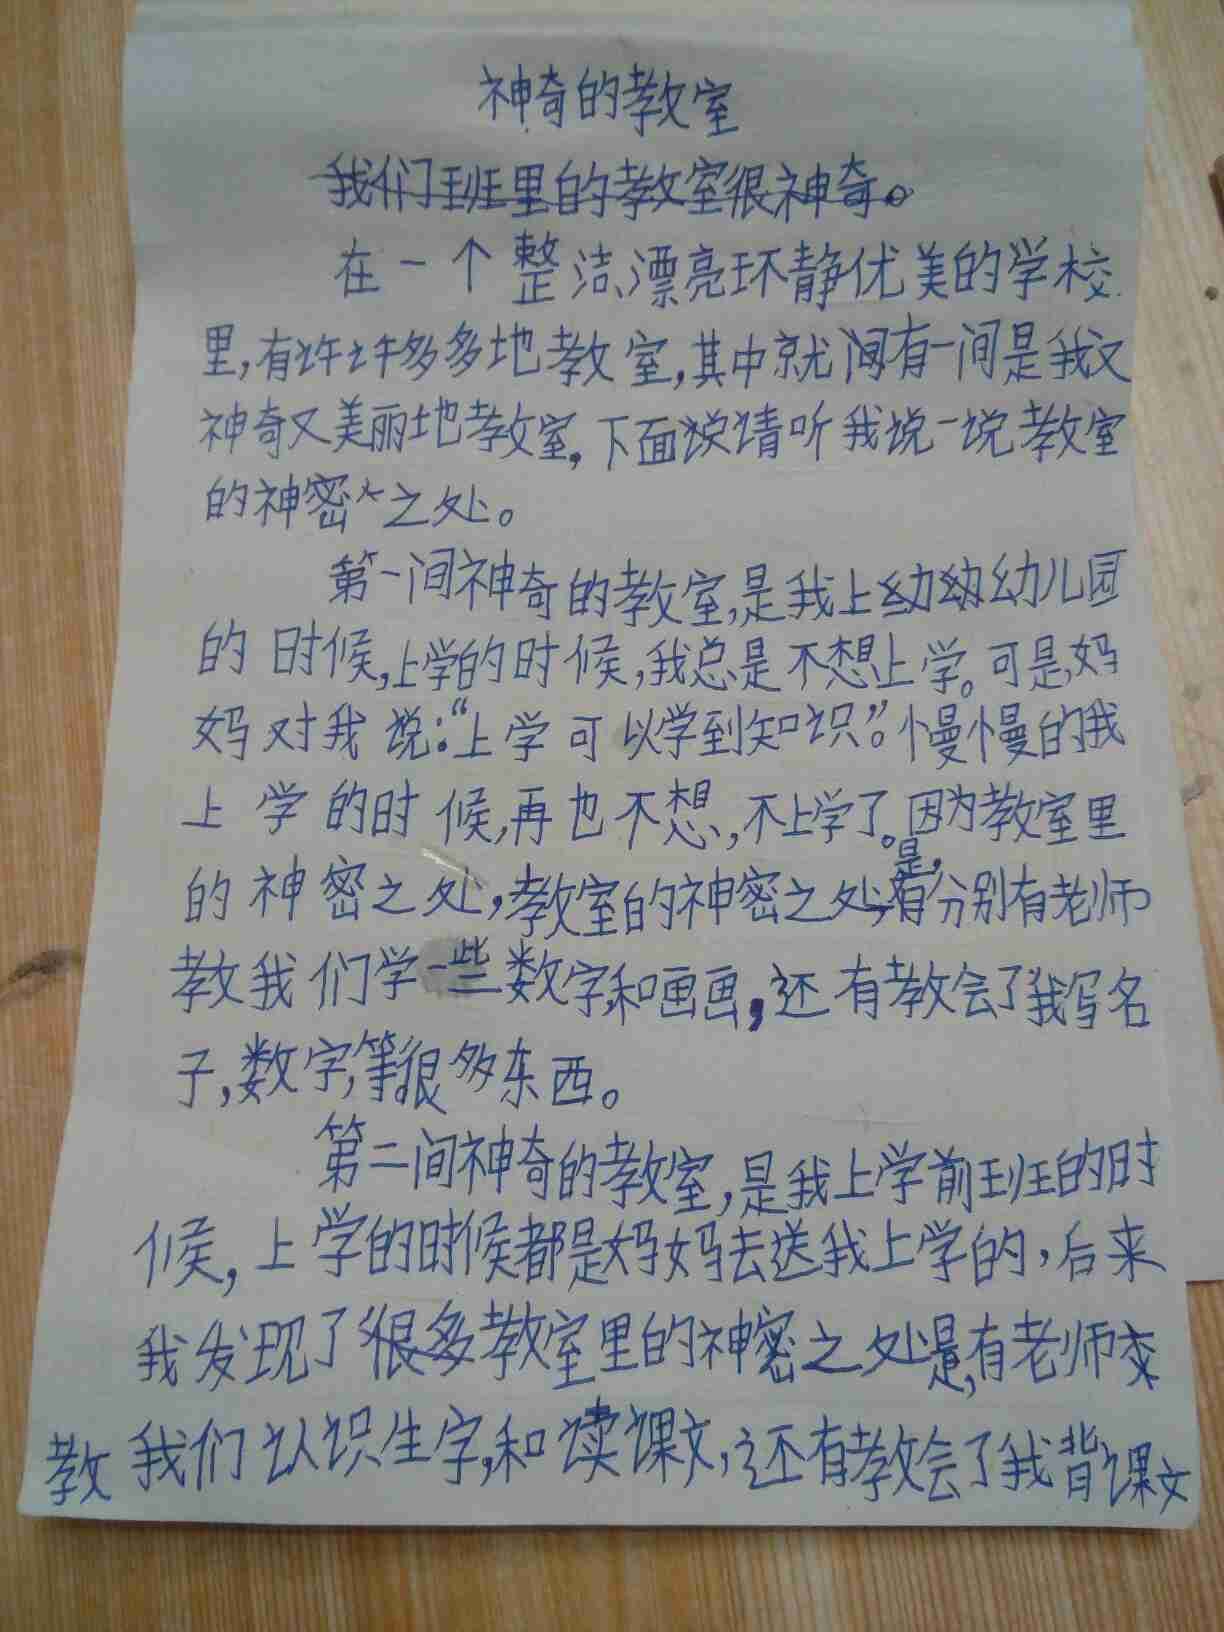 神奇的教室
我们班里的教室很神奇。
在一个整洁、漂亮环静优美的学校
里,有许许多多地教室,其中就有一间是我又
神奇又美丽地教室,下面请听我说一说教室
的神密之处。
第一间神奇的教室,是我上幼儿园
的时候,上学的时候,我总是不想上学。可是,妈
妈对我说:“上学可以学到知识”。慢慢的我
上学的时候,再也不想,不上学了。因为教室里
的神密之处,教室的神密之处是,有分别有老师
教我们学一些数字,和画画,还有教会了我写名
子,数字,等很多东西。
第二间神奇的教室,是我上学前班的时
候,上学的时候都是妈妈去送我上学的,后来
我发现了很多教室里的神密之处是,有老师
教我们认识生字,和读课文,还有教会了我背课文